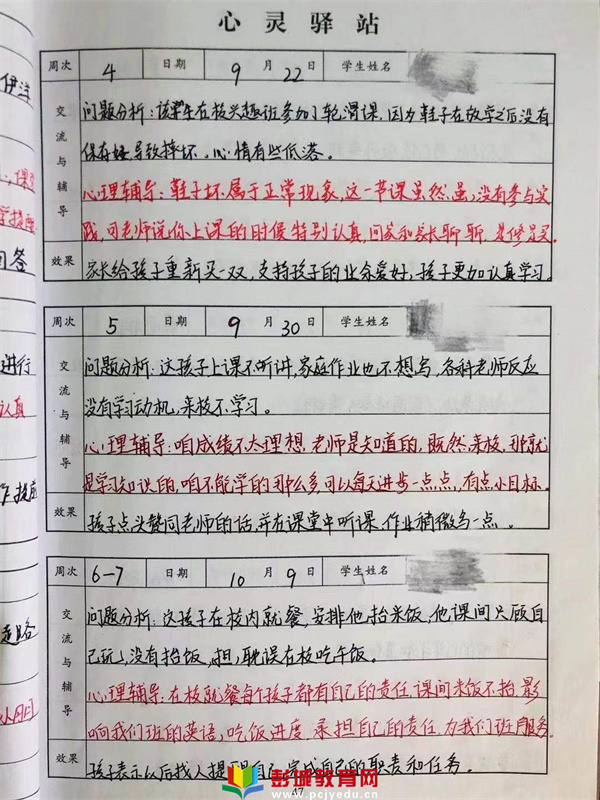 心灵驿站
周次 4 日期 9月22日 学生姓名
交流与辅导
问题分析:该学生在校兴趣班参加了轮滑课,因为鞋子在放学之后没有
保存好导致摔坏。心情有些低落。
心理辅导:鞋子坏属于正常现象,这一节课虽然没有参与实
践,可老师说你上课的时候特别认真,回家和家长聊聊,是修是买。
效果 家长给孩子重新买一双,支持孩子的业余爱好,孩子更加认真学习。
周次 5 日期 9月30日 学生姓名
交流与辅导
问题分析:这孩子上课不听讲,家庭作业也不想写,各科老师反应
没有学习动机,来校不学习。
心理辅导:咱成绩不太理想,老师是知道的,既然来校,那就
是学习知识的,咱不能学的那么多,可以每天进步一点点,有点小目标。
效果 孩子点头赞同老师的话,并在课堂中听课,作业稍微写一点。
周次 6-7 日期 10月9日 学生姓名
交流与辅导
问题分析:这孩子在校内就餐,安排他抬米饭,他课间只顾自
己玩,没有抬饭,耽误在校吃午饭。
心理辅导:在校就餐每个孩子都有自己的责任,课间米饭不抬,影
响我们班的英语,吃饭进度,承担自己的责任,为我们班服务。
效果 孩子表示以后找人提醒自己,完成自己的职责和任务。
伊注
回答
进行
认真
走路
彭城教育网
www.pcjyedu.cn
47